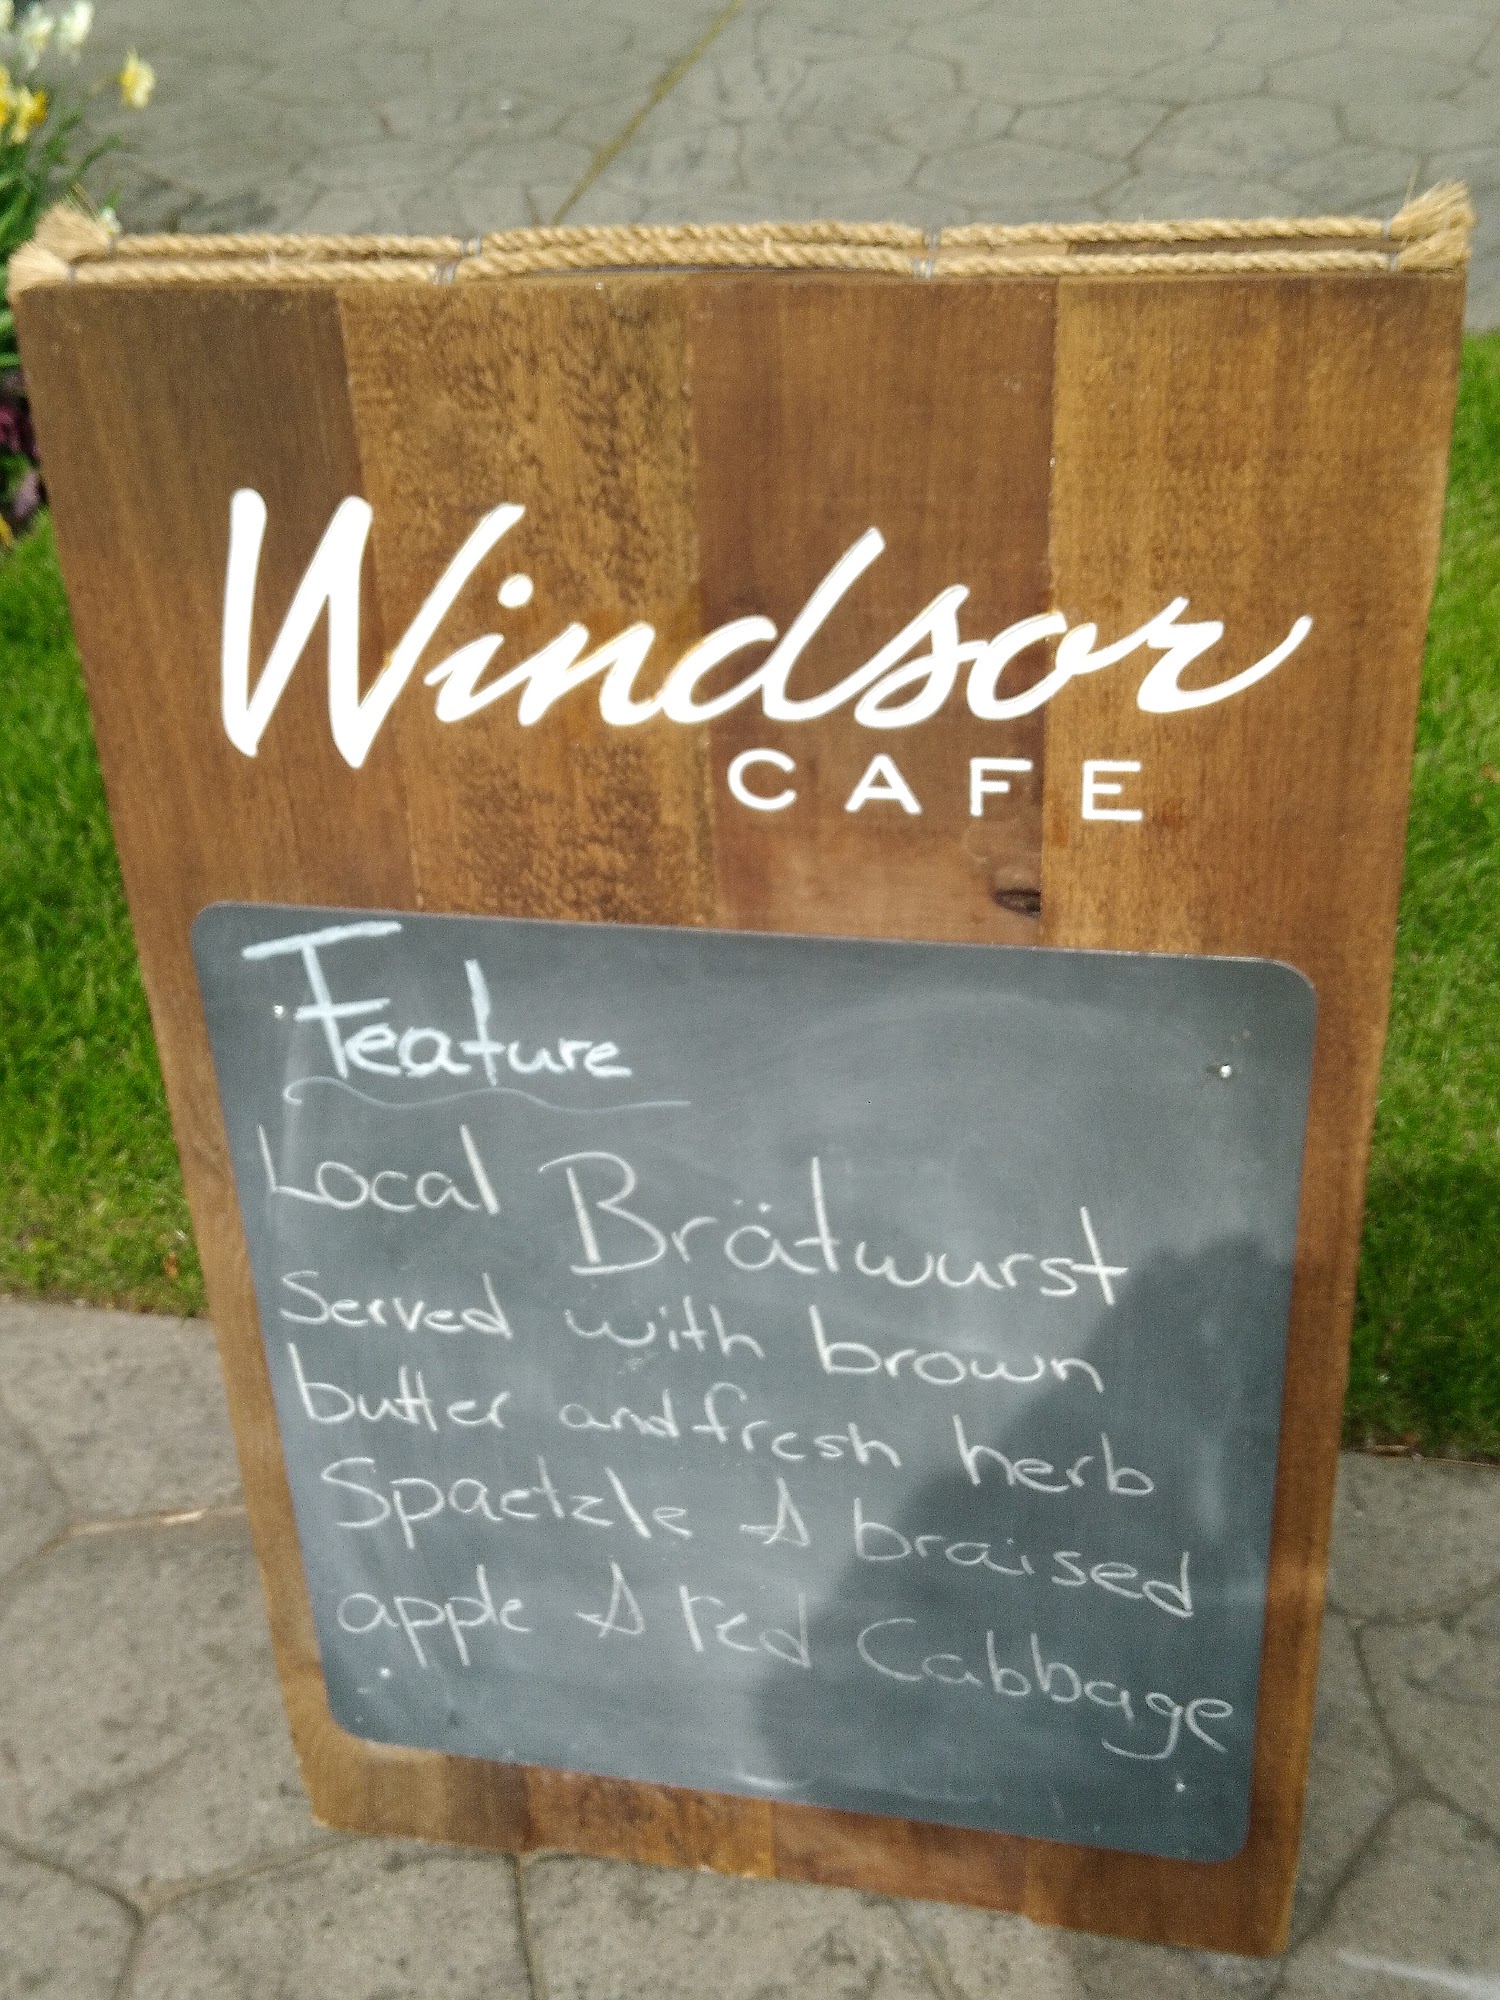 Windsor
CAFE
Feature
Local Brätwurst
Served with brown
butter and fresh herb
Spaetzle & braised
apple & red Cabbage